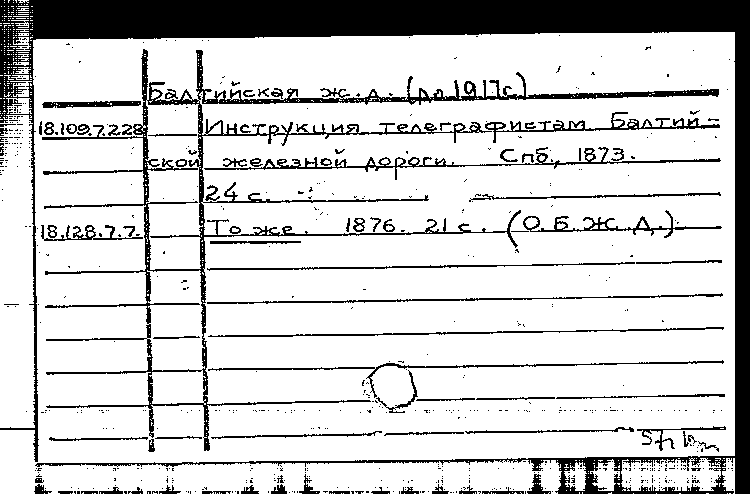 Балтийская ж.д. (до 1917г)
18.109.7.228 Инструкция телеграфистам Балтий-
ской железной дороги. Спб., 1873.
24 с.
18.128.7.7. То же. 1876. 21 с. (О.Б.Ж.Д.)